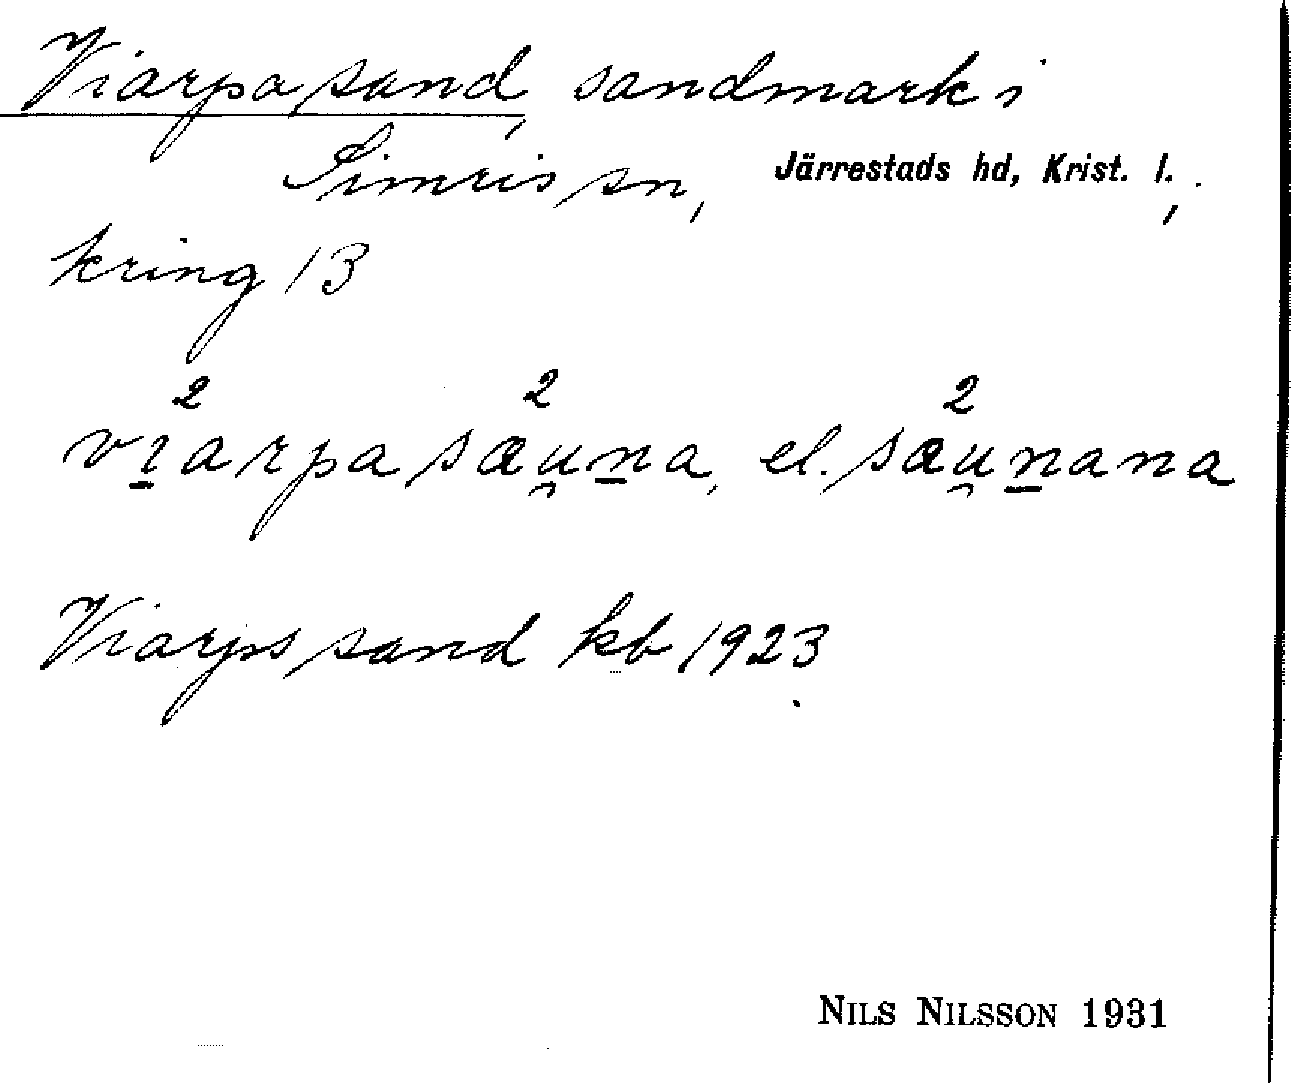 Viarpasand, sandmark i
Simris sn, Järrestads hd, Krist. l.,
kring 13
2 2 2
vi̱arpasæu̯ṉa, el. sæu̯ṉana
Viarps sand kb 1923
NILS NILSSON 1931